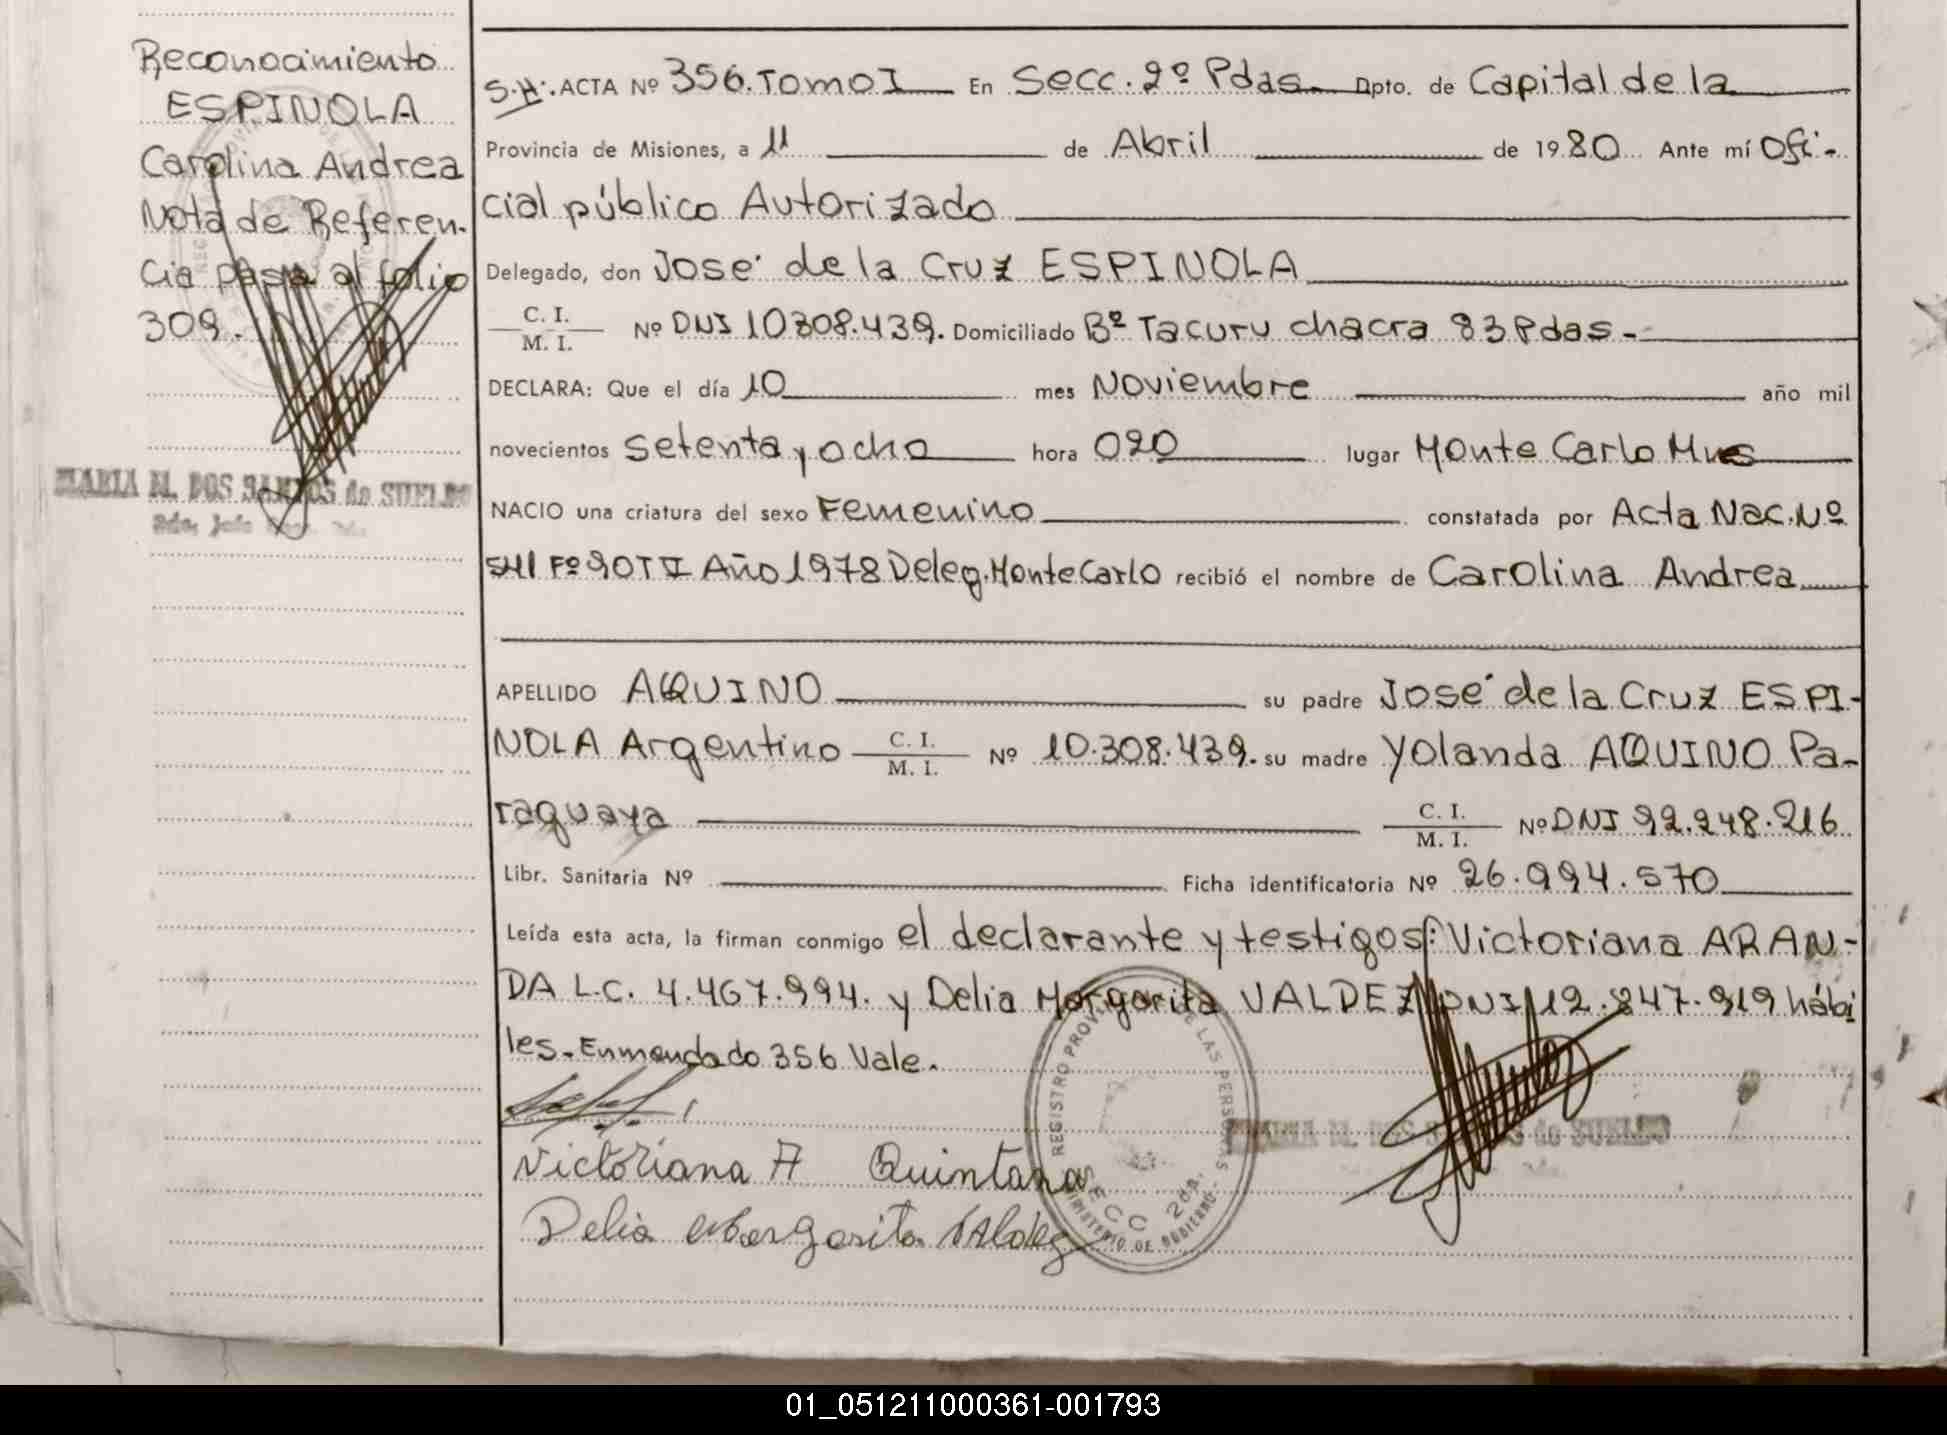 Reconocimiento
ESPINOLA
Carolina Andrea
Nota de Referen-
cia pasa al folio
309.
MARIA M. DOS SANTOS de SUELDO
S.H. ACTA Nº 356.Tomo I En Secc. 2º Pdas. Dpto. de Capital de la
Provincia de Misiones, a 11 de Abril de 1980 Ante mí Ofi-
cial público Autorizado
Delegado, don José de la Cruz ESPINOLA
C. I.
M. I. Nº DNI 10308.439. Domiciliado Bº Tacuru chacra 83 Pdas-
DECLARA: Que el día 10 mes Noviembre año mil
novecientos setenta y ocho hora 020 lugar Monte Carlo Mnes
NACIO una criatura del sexo Femenino constatada por Acta Nac. Nº
541 Fº 90 T II Año 1978 Deleg. Monte Carlo recibió el nombre de Carolina Andrea
APELLIDO AQUINO su padre José de la Cruz ESPI-
NOLA Argentino C. I.
M. I. Nº 10.308.439. su madre Yolanda AQUINO Pa-
raguaya C. I.
M. I. Nº DNI 92.248.216
Libr. Sanitaria Nº Ficha identificatoria Nº 26.994.570
Leída esta acta, la firman conmigo el declarante y testigos: Victoriana ARAN-
DA L.C. 4.467.994. y Delia Margarita VALDEZ DNI 12.847.919 hábi
les. Enmendado 356 Vale.
Victoriana A Quintana
Delia Margarita Valdez
REGISTRO PROVINCIAL DE LAS PERSONAS
SECC 2da.
MINISTERIO DE GOBIERNO
MARIA M. DOS SANTOS de SUELDO
01_051211000361-001793